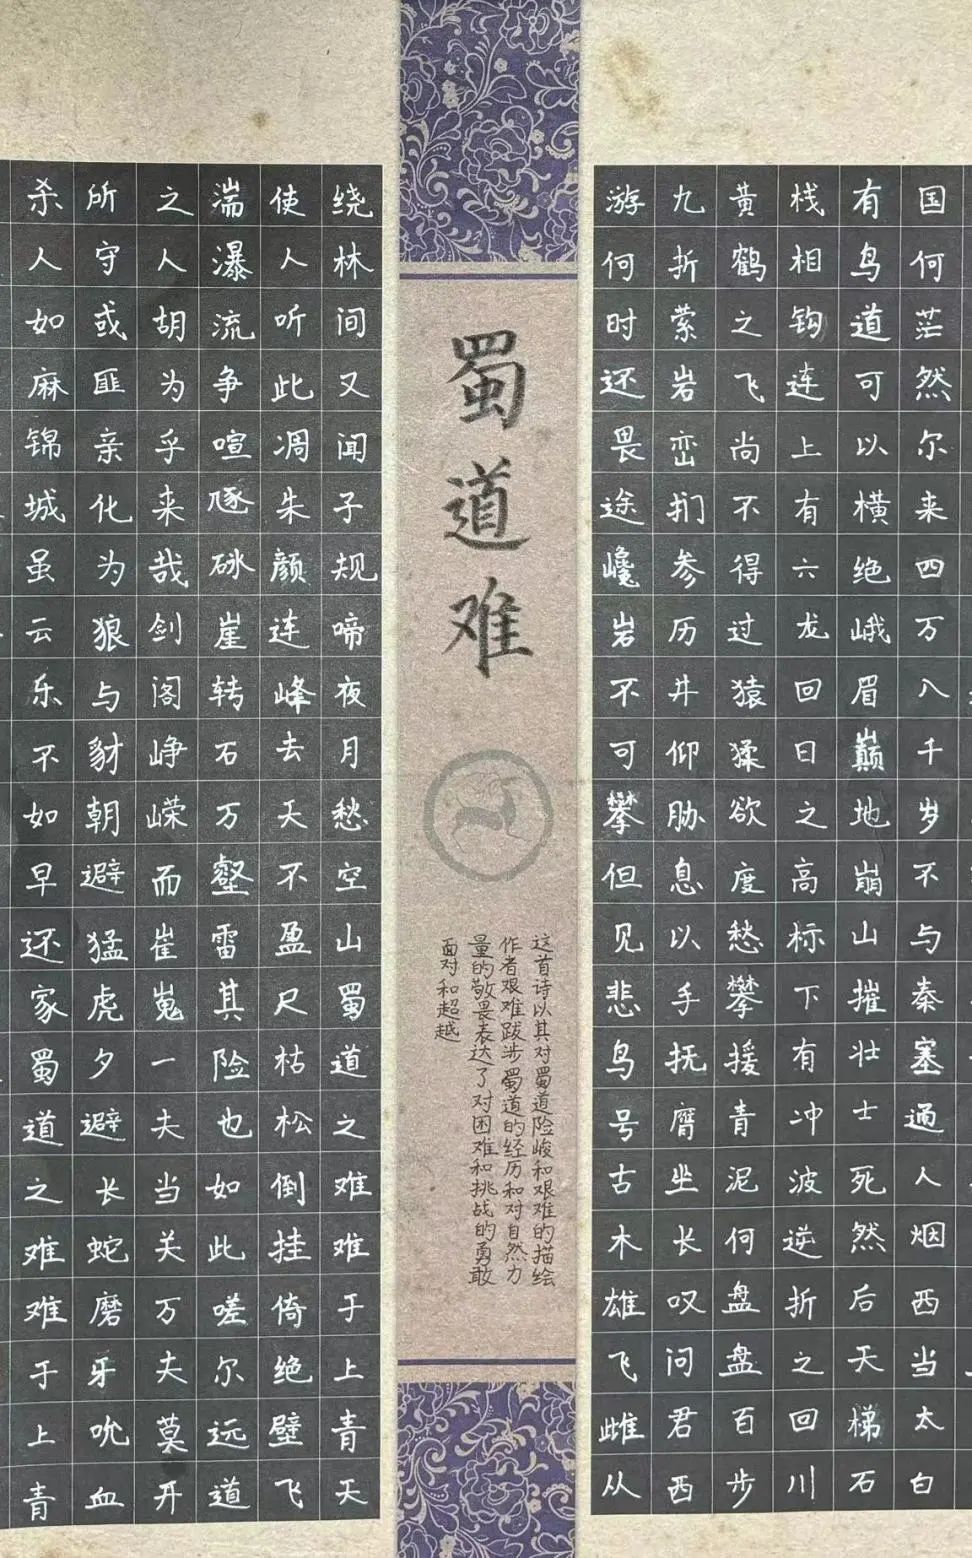 国何茫然尔来四万八千岁不与秦塞通人烟西当太白
有鸟道可以横绝峨眉巅地崩山摧壮士死然后天梯石
栈相钩连上有六龙回日之高标下有冲波逆折之回川
黄鹤之飞尚不得过猿猱欲度愁攀援青泥何盘盘百步
九折萦岩峦扪参历井仰胁息以手抚膺坐长叹问君西
游何时还畏途巉岩不可攀但见悲鸟号古木雄飞雌从
蜀道难
这首诗以其对蜀道险峻和艰难的描绘
作者艰难跋涉蜀道的经历和对自然力
量的敬畏表达了对困难和挑战的勇敢
面对和超越
绕林间又闻子规啼夜月愁空山蜀道之难难于上青天
使人听此凋朱颜连峰去天不盈尺枯松倒挂倚绝壁飞
湍瀑流争喧豗砯崖转石万壑雷其险也如此嗟尔远道
之人胡为乎来哉剑阁峥嵘而崔嵬一夫当关万夫莫开
所守或匪亲化为狼与豺朝避猛虎夕避长蛇磨牙吮血
杀人如麻锦城虽云乐不如早还家蜀道之难难于上青